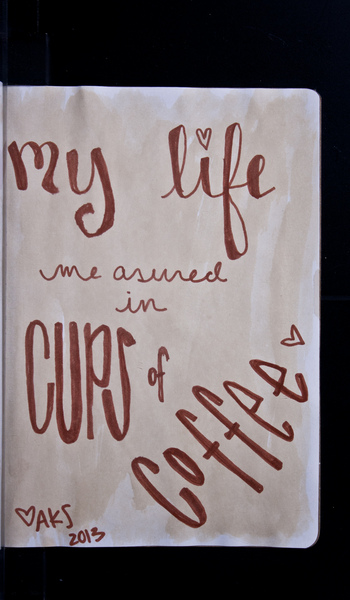 my life
measured
in
CUPS of
Coffee
♡AKS
2013